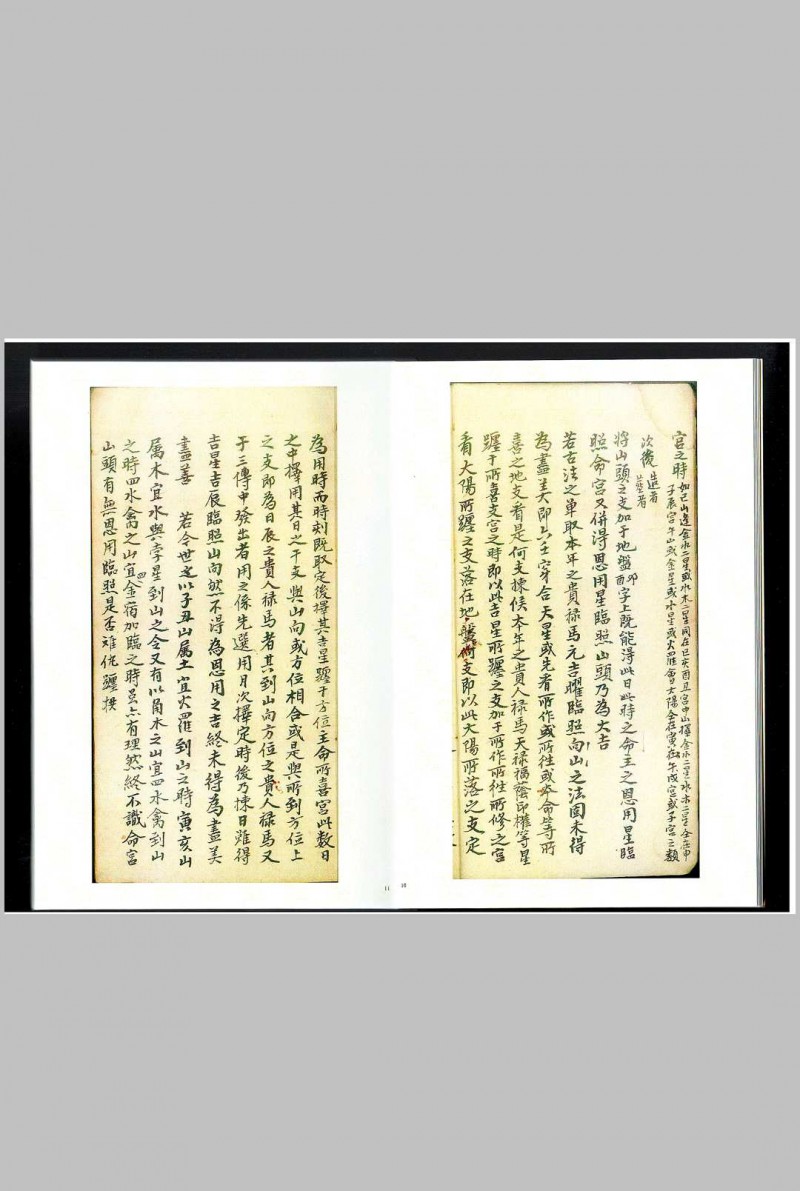 宮之時如巳山逢金水二星或水木二星同在巳亥酉丑宮中山擇金水二星水木二星全在申
子辰宮午山或金星或水星或火羅會太陽全在寅在午戌宮或子宮三類
次後造者葬者
將山頭之支加于地盤卯酉字上既能得此日此時之命主之恩用星臨
照命宮又併得恩用星臨照山頭乃為大吉
若古法之單取本年之貴祿馬元吉曜臨照向山之法固未得
為盡美大即六壬穿合天星或先看所作或所往或本命等所
喜之地支看是何支揀候本年之貴人祿馬天祿福蔭印權等星
躔于所喜支宮之時即以此吉星所躔之支加于所作所往所修之宮
看太陽所躔之支落在地盤何支即以此太陽所落之支定
為用時而時刻既取定後擇其吉星躔于方位主命所喜宮此數日
之中擇用其日之干支與山向或方位相合或是與所到方位上
之支即為日辰之貴人祿馬者其到山向方位之貴人祿馬又
于三傳中發出者用之像先選用月次擇定時後乃揀日雖得
吉星吉辰臨照山向然不得為恩用之吉終未得為盡美
盡善 若今世之以子丑山属土宜火羅到山之時寅亥山
属木宜水與孛星到山之令又有以角木之山宜四水禽到山
之時四水禽之山宜四金宿加臨之時虽亦有理然終不識命宮
山頭有無恩用臨照是否難仇躔拱
11
10